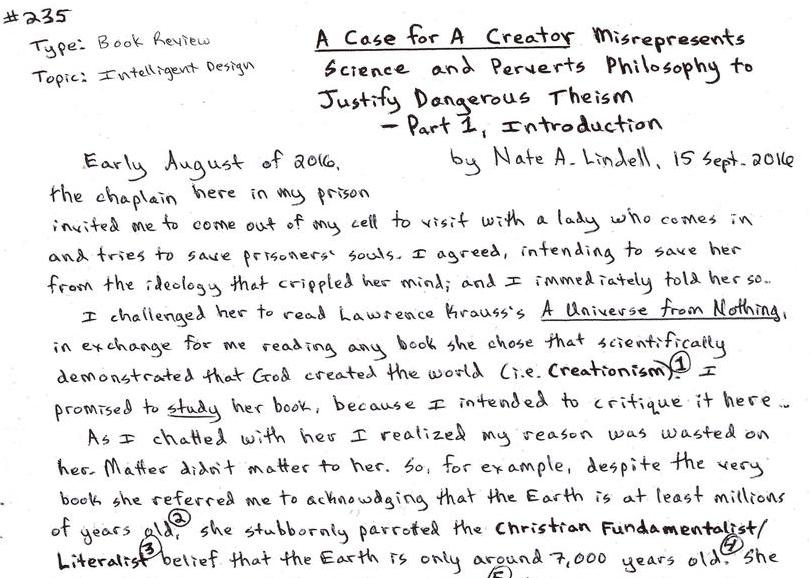 #235
Type: Book Review
Topic: Intelligent Design
A Case for A Creator Misrepresents
Science and Perverts Philosophy to
Justify Dangerous Theism
- Part 1, Introduction
by Nate A. Lindell, 15 Sept. 2016
Early August of 2016,
the chaplain here in my prison
invited me to come out of my cell to visit with a lady who comes in
and tries to save prisoners' souls. I agreed, intending to save her
from the ideology that crippled her mind; and I immediately told her so..
I challenged her to read Lawrence Krauss's A Universe from Nothing,
in exchange for me reading any book she chose that scientifically
demonstrated that God created the world (i.e. Creationism).① I
promised to study her book, because I intended to critique it here..
As I chatted with her I realized my reason was wasted on
her. Matter didn't matter to her. So, for example, despite the very
book she referred me to acknowdging that the Earth is at least millions
of years old,② she stubbornly parroted the Christian Fundamentalist/
Literalist③ belief that the Earth is only around 7,000 years old.④ She
⑤